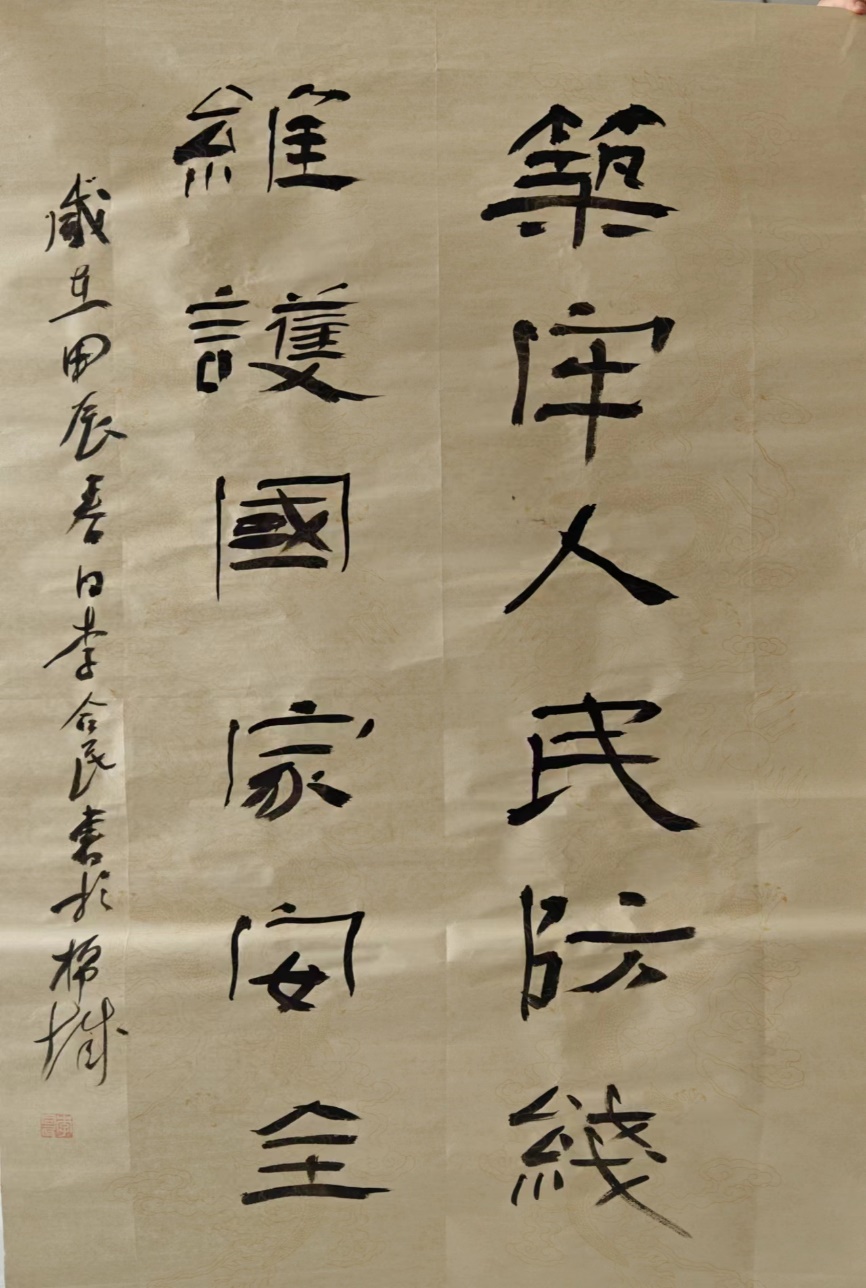 築牢人民防綫
維護國家安全
歲在甲辰春日李合民書於棉城